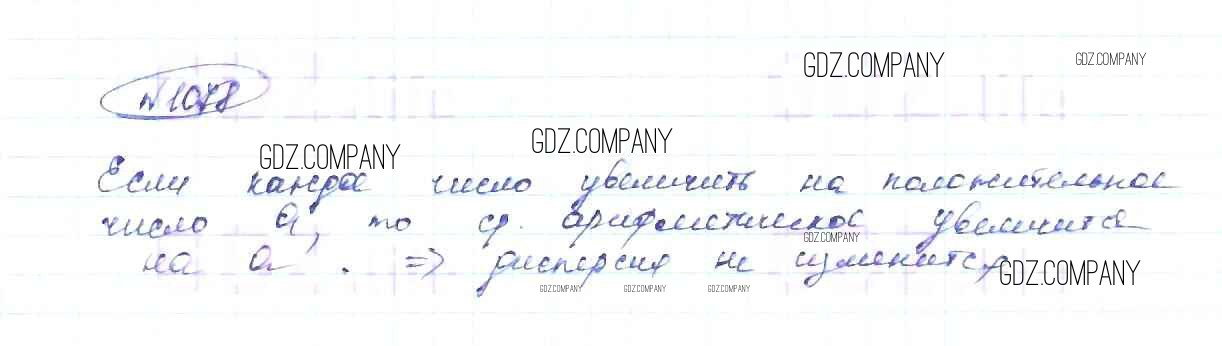 GDZ.COMPANY GDZ.COMPANY
№1078
GDZ.COMPANY GDZ.COMPANY
Если каждое число увеличить на положительное
число a, то ср. арифметическое увеличится
GDZ.COMPANY
на a. => дисперсия не изменится
GDZ.COMPANY
GDZ.COMPANY GDZ.COMPANY GDZ.COMPANY